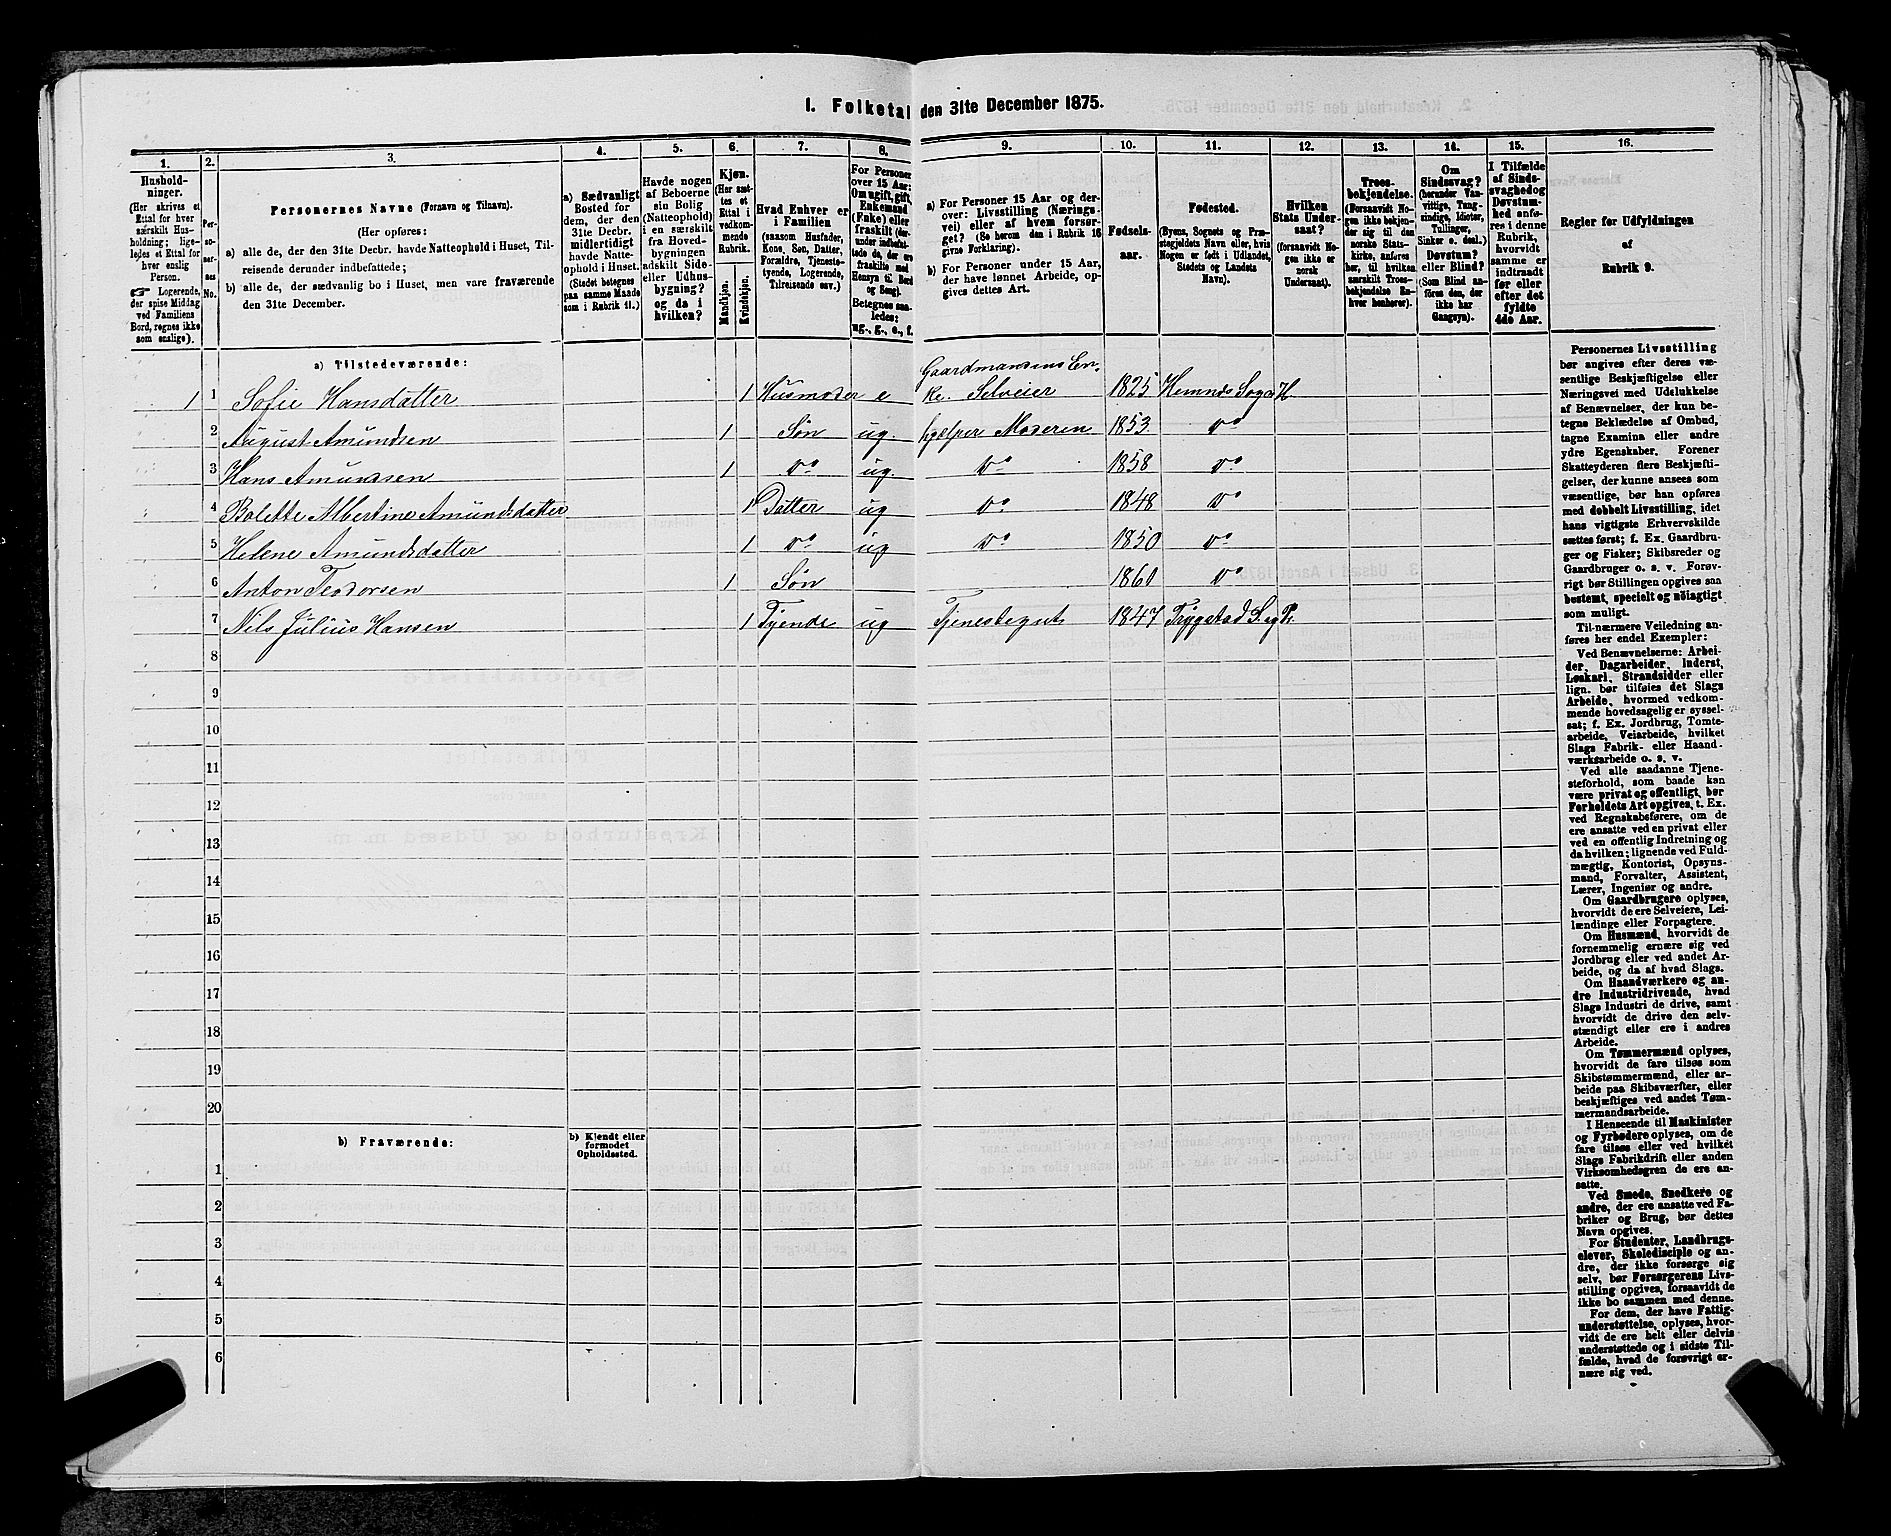 I. Folketal den 31te December 1875.
1. 2. 3. 4. 5. 6. 7. 8. 9. 10. 11. 12. 13. 14. 15. 16.
Hushold-
ninger.
(Her skrives et
Ettal for hver
særskilt Hus-
holdning; lige-
ledes et Ettal for
hver enslig
Person.
☞ Logerende,
der spise Middag
ved Familiens
Bord, regnes ikke
som enslige).
Per-
so-
ner-
nes
No.
Personernes Navne (Fornavn og Tilnavn).
(Her opføres:
a) alle de, der den 31te Decbr. havde Natteophold i Huset, Til-
reisende derunder indbefattede;
b) alle de, der sædvanlig bo i Huset, men vare fraværende
den 31te December.
a) Sædvanligt
Bosted for
dem, der den
31te Decbr.
midlertidigt
havde Natte-
ophold i Huset.
(Stedet betegnes
paa samme Maade
som i Rubrik 11.)
Havde nogen
af Beboerne
sin Bolig
(Natteophold)
i en særskilt
fra Hoved-
bygningen
adskilt Side-
eller Udhus-
bygning?
og da i
hvilken?
Kjøn.
(Her sæt-
tes et
Ettal i
vedkom-
mende
Rubrik.
Mandkjøn.
Kvindekjøn.
Hvad Enhver er
i Familien
(saasom Husfader,
Kone, Søn, Datter,
Forældre, Tjeneste-
tyende, Logerende,
Tilreisende osv.)
For Personer
over 15 Aar:
Om ugift, gift,
Enkemand
(Enke) eller
fraskilt (der-
under indbefat-
tede de, der
ere fraskilte med
Hensyn til Bord
og Seng).
Betegnes saa-
ledes:
ug., g., e., f.
a) For Personer 15 Aar og der-
over: Livsstilling (Nærings-
vei) eller af hvem forsør-
get? (Se herom den i Rubrik 16
givne Forklaring).
b) For Personer under 15 Aar,
der have lønnet Arbeide, op-
gives dettes Art.
Fødsels-
aar.
Fødested.
(Byens, Sognets og Præ-
stegjeldets Navn eller, hvis
Nogen er født i Udlandet,
Stedets og Landets
Navn).
Hvilken
Stats Under-
saat?
(forsaavidt No-
gen ikke er
norsk
Undersaat).
Troes-
bekjendelse.
(Forsaavidt No-
gen ikke bekjen-
der sig til den
norske Stats-
kirke, anføres
her, til hvilken
særskilt Troes-
bekjendelse En-
hver henhører).
Om
Sindssvag?
(herunder Van-
vittige, Tung-
sindige, Idioter,
Tullinger,
Sinker o. desl.)
Døvstum?
eller Blind?
(Som Blind an-
føres den, der
ikke har
Gangsyn).
I Tilfælde
af Sinds-
svaghedog
Døvstum-
hed anfø-
res i denne
Rubrik,
hvorvidt
samme er
indtraadt
før eller
efter det
fyldte
4de Aar.
Regler for Udfyldningen
af
Rubrik 9.
a) Tilstedeværende:
Gaardmandens En-
1 1 Sofie Hansdatter 1 Husmoder e ke. Selveier 1825 Hemnes Sogn H.
2 August Amundsen 1 Søn ug. hjælper Moderen 1853 do
3 Hans Amundsen 1 do ug. do 1858 do
4 Bolette Albertine Amundsdatter 1 Datter ug do 1848 do
5 Helene Amundsdatter 1 do ug do 1850 do
6 Anton Teodorsen 1 Søn 1860 do
7 Nils Julius Hansen 1 Tyende ug Tjenestegut 1847 Trygstad S. og Pr.
8
9
10
11
12
13
14
15
16
17
18
19
20
b) Fraværende:
b) Kjendt eller
formodet
Opholdssted.
1
2
3
4
5
6
Personernes Livsstilling
bør angives efter deres væ-
sentlige Beskjæftigelse eller
Næringsvei med Udelukkelse
af Benævnelser, der kun be-
tegne Beklædelse af Ombud,
tagne Examina eller andre
ydre Egenskaber. Forener
Skatteyderen flere Beskjæfti-
gelser, der kunne ansees som
væsentlige, bør han opføres
med dobbelt Livsstilling, idet
hans vigtigste Erhvervskilde
sættes først; f. Ex. Gaardbru-
ger og Fisker; Skibsreder og
Gaardbruger o. s. v. Forøv-
rigt bør Stillingen opgives saa
bestemt, specielt og nøiagtigt
som muligt.
Til nærmere Veiledning an-
føres her endel Exempler:
Ved Benævnelserne: Arbei-
der, Dagarbeider, Inderst,
Løskarl, Strandsidder eller
lign. bør tilføies det Slags
Arbeide, hvormed vedkom-
mende hovedsagelig er syssel-
sat; f. Ex. Jordbrug, Tomte-
arbeide, Veiarbeide, hvilket
Slags Fabrik- eller Haand-
værksarbeide o. s. v.
Ved alle saadanne Tjene-
steforhold, som baade kan
være privat og offentligt, bør
Forholdets Art opgives, t. Ex.
ved Regnskabsførere, om de
ere ansatte ved en privat eller
ved en offentlig Indretning og
da hvilken; lignende ved Fuld-
mægtig, Kontorist, Opsyns-
mand, Forvalter, Assistent,
Lærer, Ingeniør og andre.
Om Gaardbrugere oplyses,
hvorvidt de ere Selveiere, Lei-
lændinge eller Forpagtere.
Om Husmænd, hvorvidt de
fornemmelig ernære sig ved
Jordbrug eller ved andet Ar-
beide, og da af hvad Slags.
Om Haandværkere og an-
dre Industridrivende, hvad
Slags Industri de drive, samt
hvorvidt de drive den selv-
stændigt eller ere i andres
Arbeide.
Om Tømmermænd oplyses,
hvorvidt de fare tilsøs som
Skibstømmermænd, eller ar-
beide paa Skibsværfter, eller
beskjæftiges ved andet Tøm-
mermandsarbeide.
I Henseende til Maskinister
og Fyrbødere oplyses, om de
fare tilsøs eller ved hvilket
Slags Fabrikdrift eller anden
Virksomhedsgren de ere an-
satte.
Ved Smede, Snedkere og
andre, der ere ansatte ved Fa-
briker og Brug, bør dettes
Navn opgives.
For Studenter, Landbrugs-
elever, Skoledisciple og an-
dre, der ikke forsørge sig
selv, bør Forsørgerens Livs-
stilling opgives, forsaavidt de
ikke bo sammen med denne.
For dem, der have Fattig-
understøttelse, oplyses, hvor-
vidt de ere helt eller delvis
understøttede og i sidste Til-
fælde, hvad de forøvrigt er-
nære sig ved.